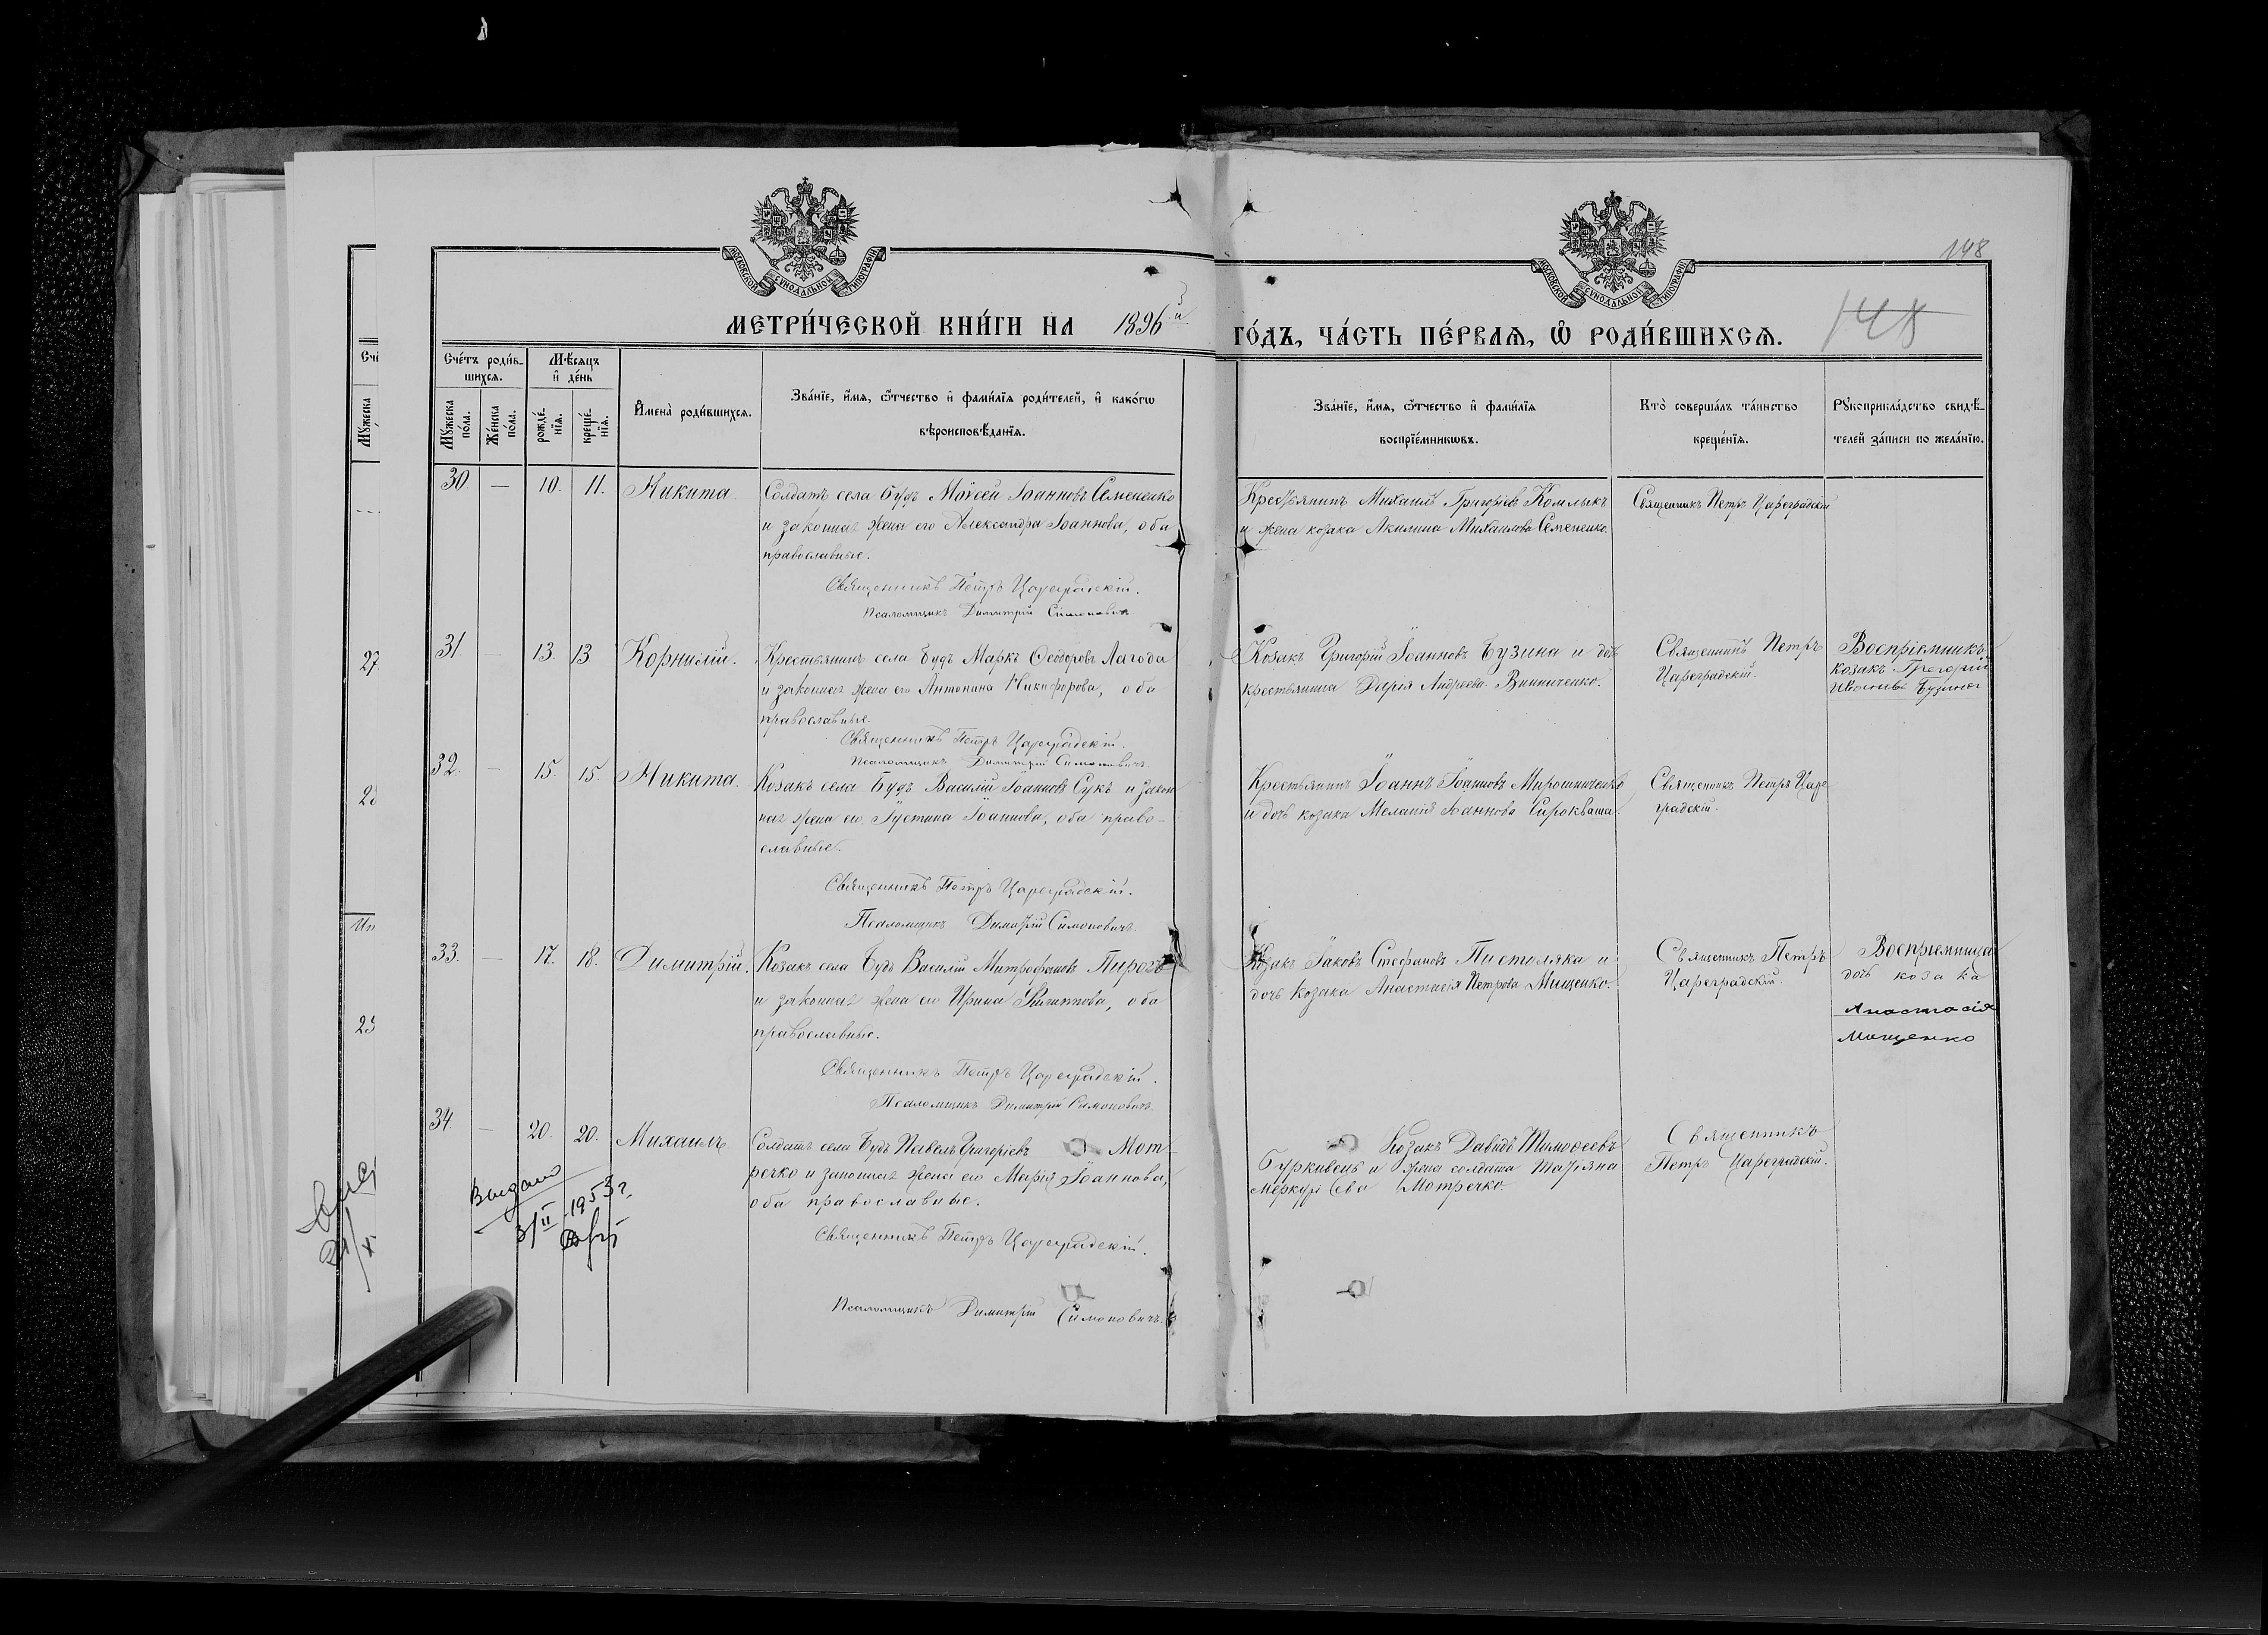 148
148
МОСКОВСКОЙ СУНОДАЛЬНОЙ ТИПОГРАФІИ
МОСКОВСКОЙ СУНОДАЛЬНОЙ ТИПОГРАФІИ
МЕТРИ́ЧЕСКОЙ КНИ́ГИ НА 1896й
ГО́ДЪ, ЧА́СТЬ ПЕ́РВАѦ, Ѽ РОДИ́ВШИХСѦ.
Сче́тъ роди́в-
шихсѧ.
Мѣ́сяцъ
и҆ де́нь
Мꙋ́жеска
по́ла.
Же́нска
по́ла.
рожде́-
нїѧ.
креще́-
нїѧ.
И҆мена̀ роди́вшихсѧ.
Зва́нїе, и҆́мѧ, ѻ҆́тчество и҆ фами́лїѧ роди́телей, и҆ како́гѡ
вѣроисповѣ́данїѧ.
Зва́нїе, и҆́мѧ, ѻ҆́тчество и҆ фами́лїѧ
воспрїе́мникѡвъ.
Кто̀ соверша́лъ та́инство
креще́нїѧ.
Рꙋкоприкла́дство свидѣ́-
телей за́писи по жела́нїю.
30. — 10. 11. Никита
Солдатъ села Будъ Моѵсей Іоанновъ Семененко
и законная жена его Александра Іоаннова, оба
православные.
Священникъ Петръ Цареградскій.
Псаломщикъ Димитрій Симоновичъ
Крестьянинъ Михаилъ Григоріевъ Комлыкъ
и жена козака Акилина Михаилова Семененко.
Священникъ Петръ Цареградскій
31. — 13. 13 Корнилій.
Крестьянинъ села Будъ Маркъ Ѳеодоровъ Лагода
и законная жена его Антонина Никифорова, оба
православные.
Священникъ Петръ Цареградскій.
Псаломщикъ Димитрій Симоновичъ.
Козакъ Григорій Іоанновъ Бузина и дочь
крестьянина Дарія Андреева Винниченко.
Священникъ Петръ
Цареградскій.
Воспріемникъ
козакъ Григорій
Бузина
32. — 15. 15. Никита.
Козакъ села Будъ Василій Іоанновъ Сукъ и закон
ная жена его Іустина Іоаннова, оба право-
славные.
Священникъ Петръ Цареградскій.
Псаломщикъ Димитрій Симоновичъ.
Крестьянинъ Іоаннъ Іоанновъ Мирошниченко
и дочь козака Меланія Іоаннова Сирокваша.
Священникъ Петръ Царе
градскій.
33. — 17. 18. Димитрій.
Козакъ села Будъ Василій Митрофановъ Пирогъ
и законная жена его Ирина Филиппова, оба
православные.
Священникъ Петръ Цареградскій.
Псаломщикъ Димитрій Симоновичъ.
Козакъ Іаковъ Стефановъ Пистоляка и
дочь козака Анастасія Петрова Мищенко.
Священникъ Петръ
Цареградскій.
Воспріемница
дочь козака
Анастасія
Мищенко
34. — 20. 20. Михаилъ
Солдатъ села Будъ Павелъ Григоріевъ Мот-
речко и законная жена его Марія Іоаннова,
оба православные.
Священникъ Петръ Цареградскій.
Псаломщикъ Димитрій Симоновичъ.
Козакъ Давидъ Тимоѳеевъ
Буркивецъ и жена солдата Татіяна
Меркуріева Мотречко.
Священникъ
Петръ Цареградскій.
3/II 1953 г.
Счі
Мꙋ́жеска
27